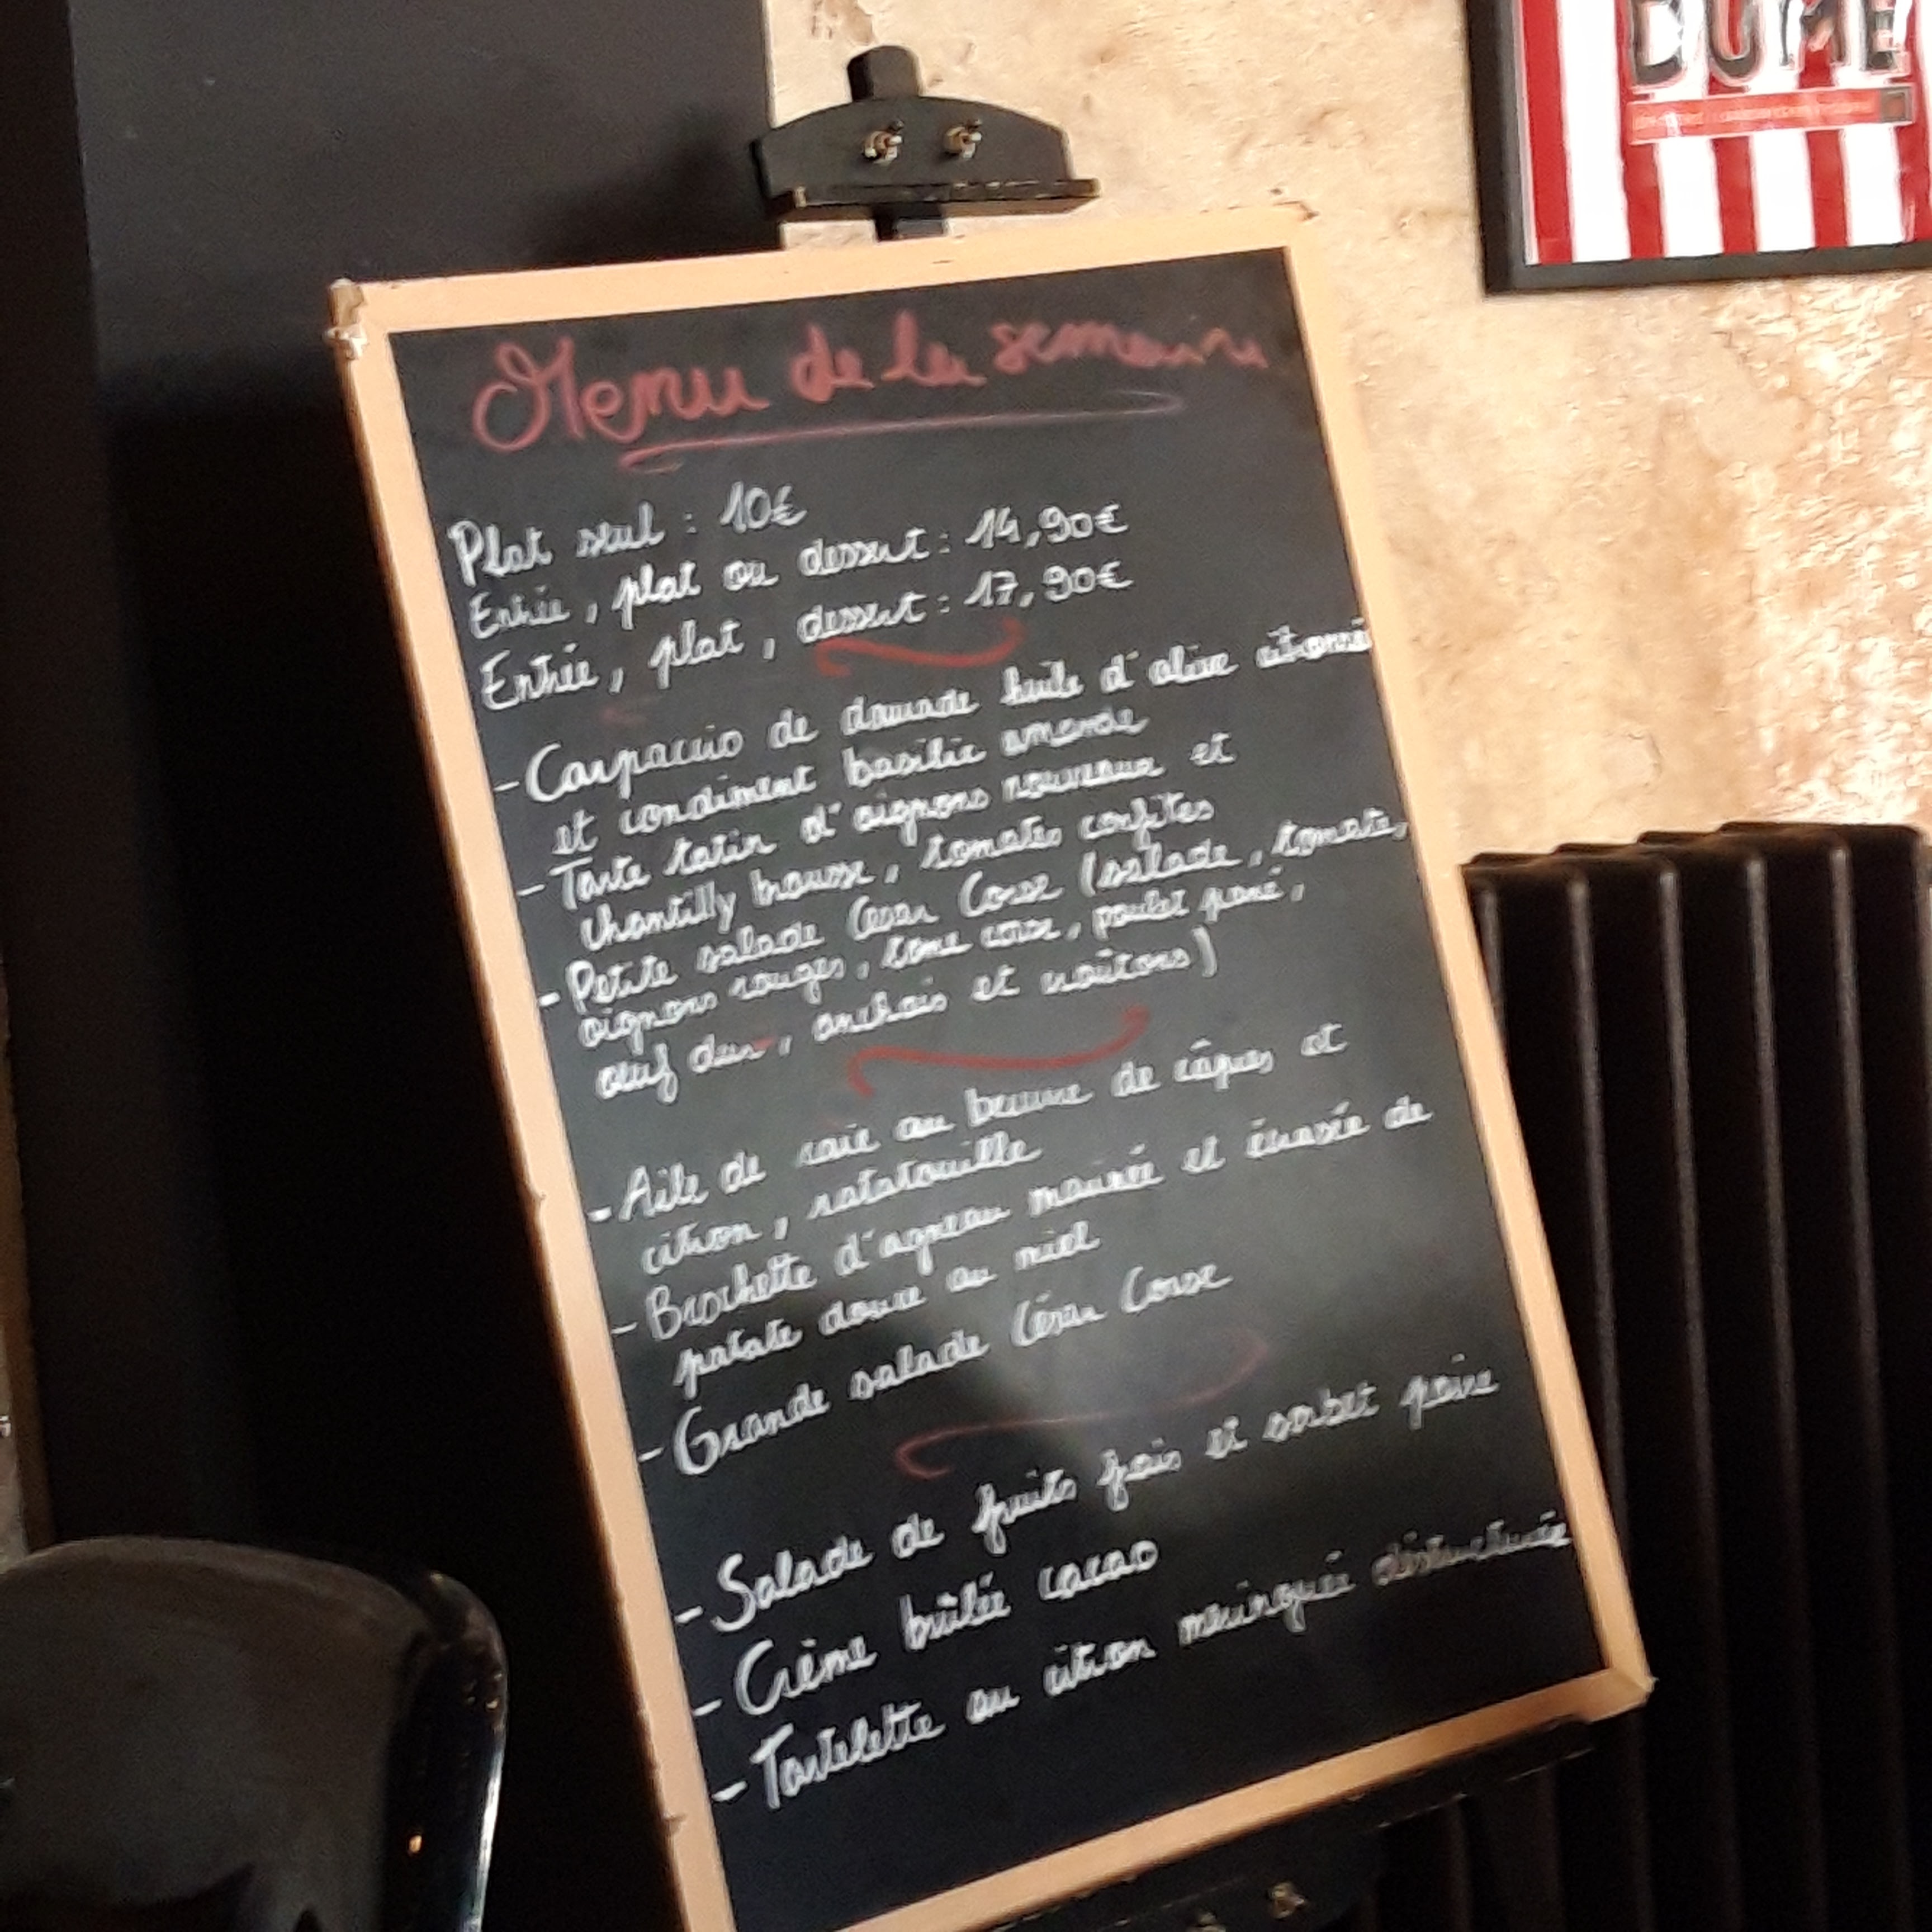 DUME
Menu de la semaine
Plat seul : 10€
Entrée, plat ou dessert : 14,90€
Entrée, plat, dessert : 17,90€
- Carpaccio de daurade huile d'olive citronné
et condiment basilic amande
- Tarte tatin d'oignons nouveaux et
chantilly brousse, tomates confites
- Petite salade César Corse (salade, tomate,
oignons rouges, tome corse, poulet pané,
œuf dur, anchois et croûtons)
- Aile de raie au beurre de câpres et
citron, ratatouille
- Brochette d'agneau marinée et écrasée de
patate douce au miel
- Grande salade César Corse
- Salade de fruits frais et sorbet poire
- Crème brûlée cacao
- Tartelette au citron meringuée déstructurée